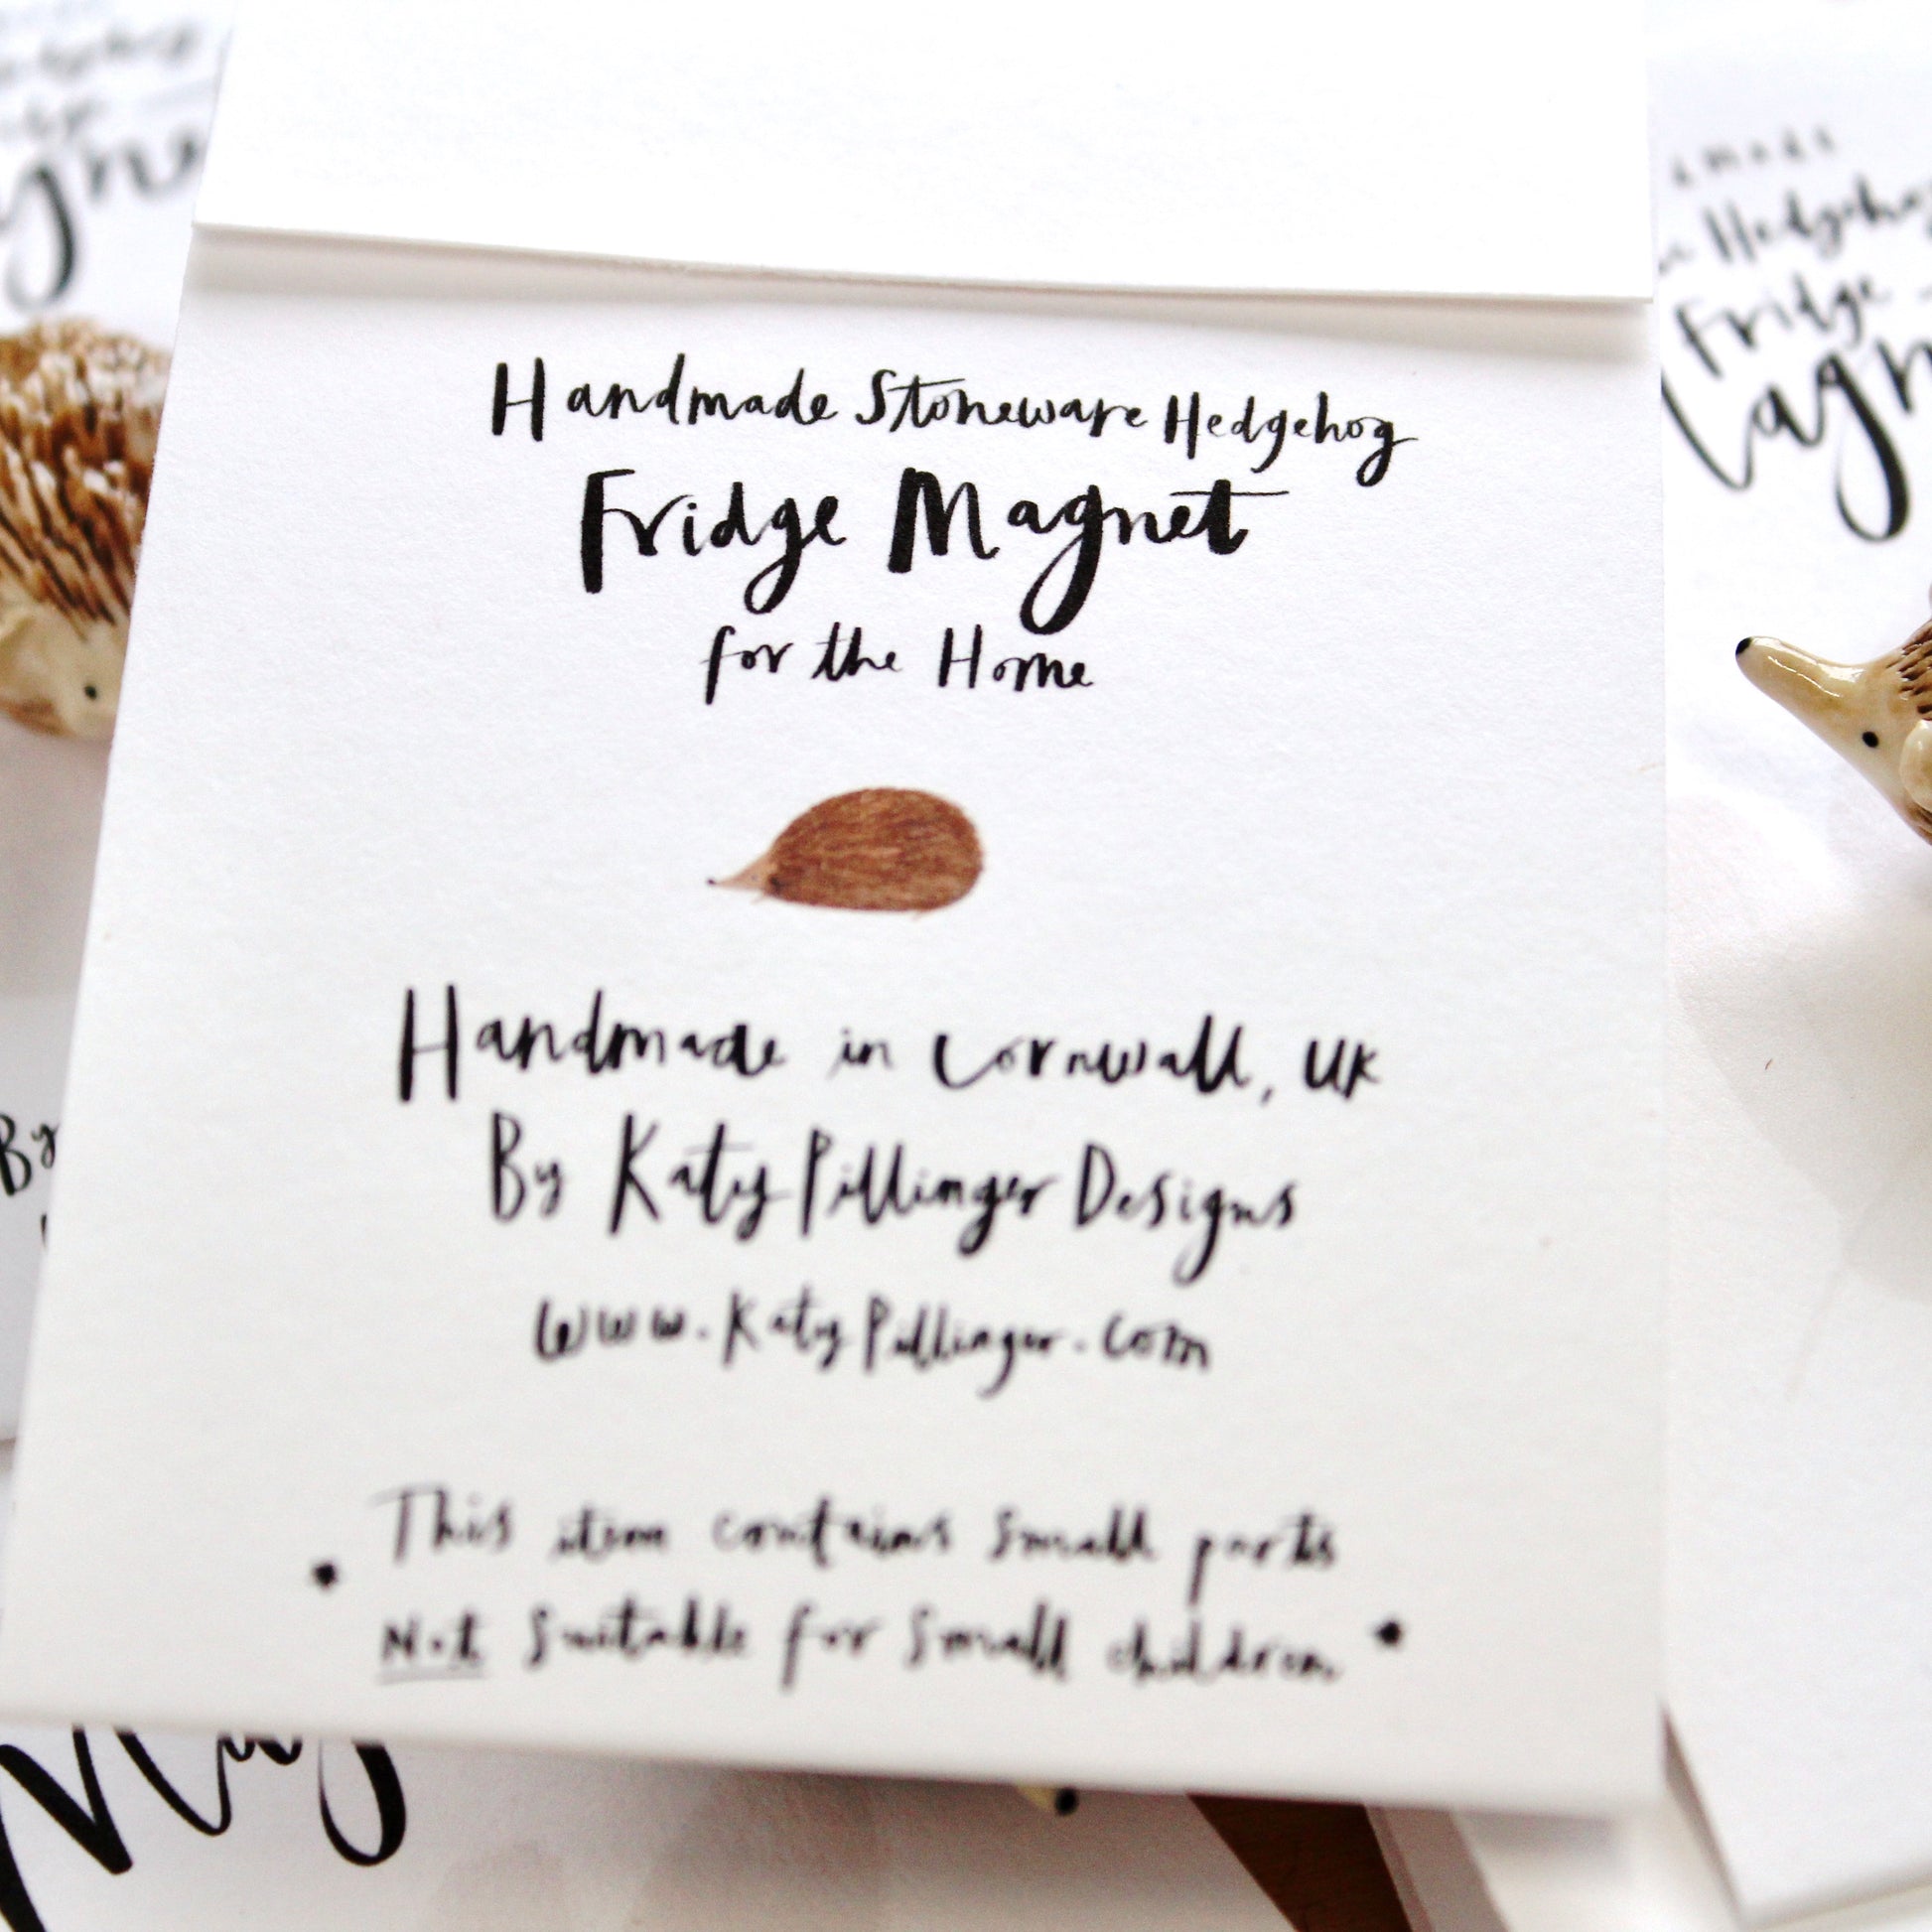 Handmade Stoneware Hedgehog
Fridge Magnet
for the Home
Handmade in Cornwall, UK
By Katy Pillinger Designs
www.KatyPillinger.com
This item contains small parts
Not suitable for small children
Hedgehog
Fridge
By